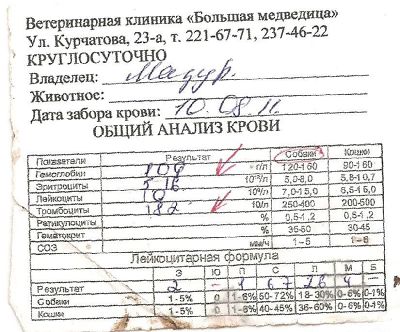 Ветеринарная клиника «Большая медведица»
Ул. Курчатова, 23-а, т. 221-67-71, 237-46-22
КРУГЛОСУТОЧНО
Владелец: Мазур.
Животное:
Дата забора крови: 10.08.11.
ОБЩИЙ АНАЛИЗ КРОВИ
Показатели Результат Собаки Кошки
Гемоглобин 104 г/л 120-150 90-160
Эритроциты 5,16 5,0-8,0 5,8-10,7
Лейкоциты 10 7,0-15,0 6,5-15,0
Тромбоциты 182 10⁹/л 250-400 200-500
Ретикулоциты % 0,5-1,2 0,5-1,2
Гематокрит % 35-50 30-45
СОЭ мм/ч 1-5 1-6
Лейкоцитарная формула
Э Ю П С Л М Б
Результат 2 - 1 67 26 4 -
Собаки 1-5% 0 1-6% 50-72% 18-30% 0-6% 0-1%
Кошки 1-5% 0 1-6% 40-45% 36-60% 0-6% 0-1%